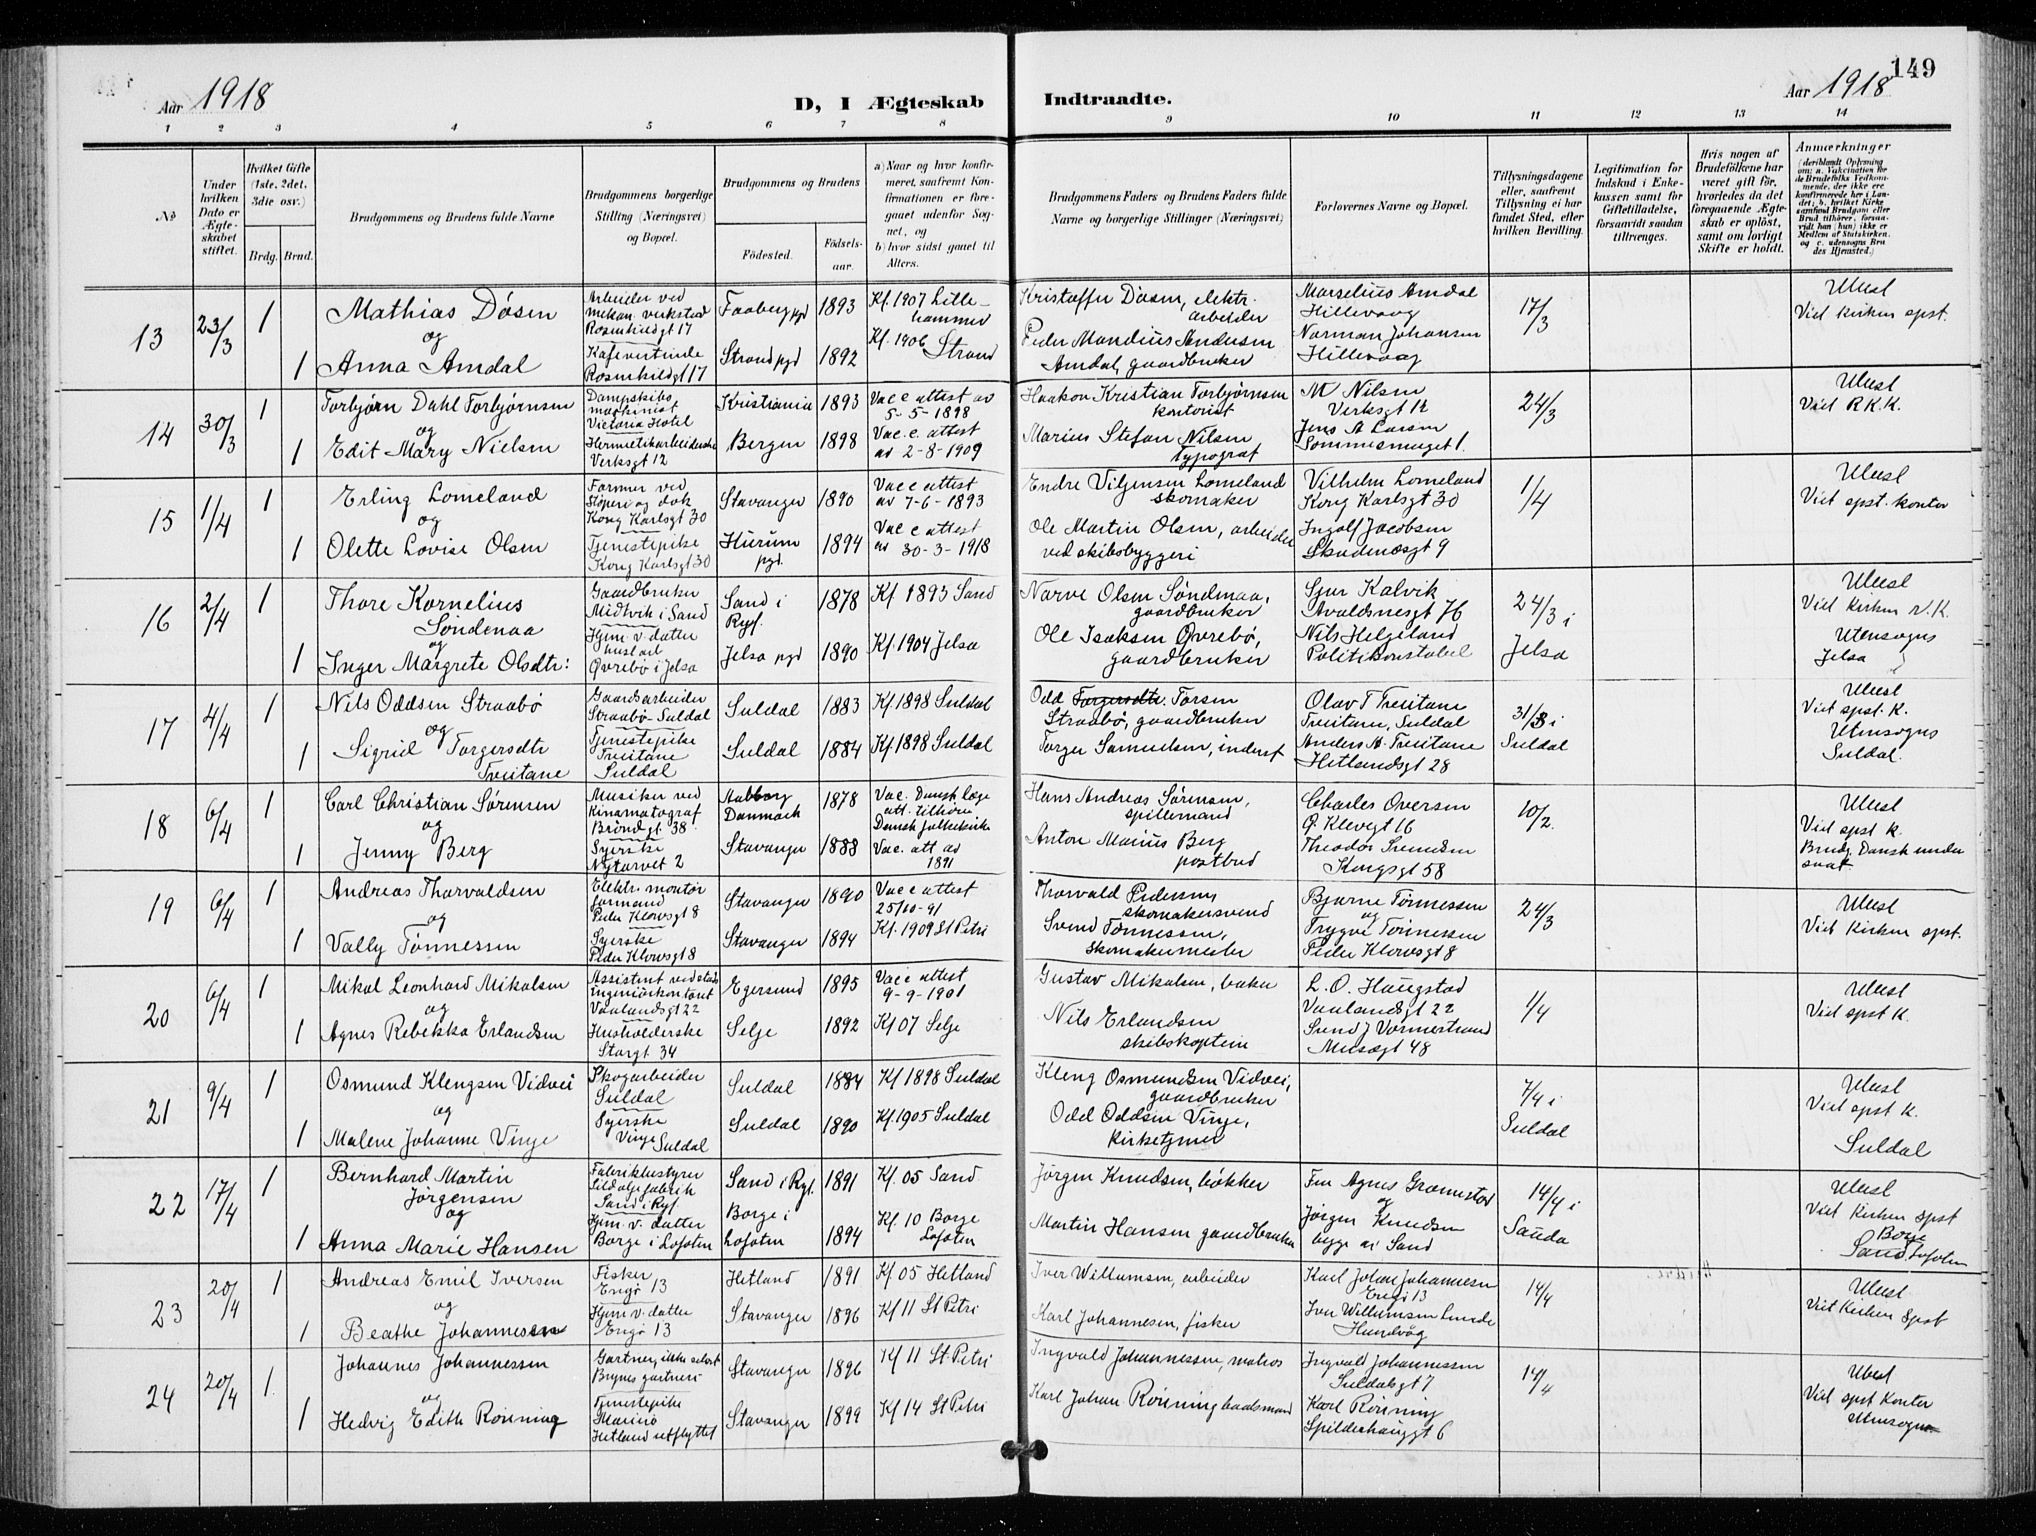 149
Aar 1918
D, I Ægteskab Indtraadte.
Aar 1918
1 2 3 4 5 6 7 8 9 10 11 12 13 14
No
Under hvilken Dato er Ægteskabet stiftet.
Hvilket Gifte (1ste, 2det, 3die osv.)
Brdg. Brud.
Brudgommens og Brudens fulde Navne
Brudgommens borgerlige Stilling (Næringsvei) og Bopæl.
Brudgommens og Brudens
Fødested.
Fødselsaar.
a) Naar og hvor konfirmeret, saafremt Konfirmationen er foregaaet udenfor Sognet, og
b) hvor sidst gaaet til Alters.
Brudgommens Faders og Brudens Faders fulde Navne og borgerlige Stillinger (Næringsvei)
Forlovernes Navne og Bopæl.
Tillysningsdagene eller, saafremt Tillysning ei har fundet Sted, efter hvilken Bevilling.
Legitimation for Indskud i Enkekassen samt for Giftetilladelse, forsaavidt saadan tiltrænges.
Hvis nogen af Brudefolkene har været gift før, hvorledes da det foregaaende Ægteskab er opløst, samt om lovligt Skifte er holdt.
Anmærkninger
(deriblandt Oplysning om: a. Vaccination for de Brudefolks Vedkommende, der ikke ere konfirmerede her i Landet; b. hvilket Kirkesamfund Brudgom eller Brud tilhører, forsaavidt han (hun) ikke er Medlem af Statskirken, og c. udensogns Brudes Hjemsted.)
13 23/3 1
Mathias Døsen
og
1 Anna Amdal
Arbeider ved
mekan. verksted
Rosenkildgt 17
Kafevertinde
Rosenkildgt 17
Faaberg pgd 1893
Strand pgd 1892
Kf. 1907 Lillehammer
Kf. 1906 Strand
Kristoffer Døsen, elektr. arbeider
Peder Mandius Andersen
Amdal, gaardbruker
Marselius Amdal
Hillevaag
Norman Johansen
Hillevaag
17/3
Viet kirken spst.
14 30/3 1
Torbjørn Dahl Torbjørnsen
og
1 Edit Mary Nielsen
Dampskibs
maskinist
Victoria Hotel
Hermetikarbeiderske
Verksgt 12
Kristiania 1893
Bergen 1898
Vacc attest av
5-5-1898
Vac.c. attest
av 2-8-1909
Haakon Kristian Torbjørnsen
kontorist
Marius Stefan Nilsen
typograf
M Nilsen
Verksgt 12
Jens A Larsen
24/3
Viet R.K.K.
15 1/4 1
Erling Lomeland
og
1 Olette Lovise Olsen
Former ved
Støperi og dok
Kong Karlsgt 30
Tjenestepike
Kong Karlsgt 30
Stavanger 1890
Hurum pgd. 1894
Vacc attest
av 7-6-1893
Vacc attest
av 30-3-1918
Endre Vilgensen Lomeland
skomaker
Ole Martin Olsen, arbeider
ved skibsbyggeri
Vilhelm Lomeland
Kong Karlsgt 30
Ingolf Jacobsen
Skudenesgt 9
1/4
Viet spst. kontor
16 2/4 1
Thore Kornelius
Søndenaa
og
1 Inger Margrete Olsdtr:
Gaardbruker
Midtvik i Sand
Hjem.v. datter
Øvrebø i Jelsa
Sand i Ryf. 1878
Jelsa pgd 1890
Kf 1893 Sand
Kf. 1904 Jelsa
Narve Olsen Søndenaa,
gaardbruker
Ole Isaksen Øvrebø,
gaardbruker
Sjur Kalvik
Avaldsnesgt 76
Nils Helgeland
Politikonstabel
24/3 i
Jelsa
Viet kirken
Utensogns
Jelsa
17 4/4 1
Nils Oddsen Straabø
og
1 Sigrid Torgersdtr
Treitane
Gaardsarbeider
Straabø-Suldal
Tjenestepike
Treitane
Suldal
Suldal 1883
Suldal 1884
Kf. 1898 Suldal
Kf. 1898 Suldal
Odd Torgersdtr. Torsen
Straabø, gaardbruker
Torger Samuelsen, inderst
Olav T Treitane
Treitane, Suldal
Anders A. Treitane
Hetlandsgt 28
31/3 i
Suldal
Viet spst. K.
Utensogns
Suldal.
18 6/4 1
Carl Christian Sørensen
og
1 Jenny Berg
Musiker ved
Kinamatograf
Brøndgt 38
Syerske
Nytorvet 2
Aalborg
Danmark 1878
Stavanger 1888
Vac. Dansk læge
att. tilhører
Dansk folkekirke
Vac. att av
1891
Hans Andreas Sørensen,
spillemand
Anton Marius Berg
postbud
Charles Oversen
P. Klovsgt 16
Theodor Svendsen
Kongsgt 58
10/2
Viet spst k.
Brudg. Dansk undersaat
19 6/4 1
Andreas Thorvaldsen
og
1 Vally Tønnessen
Elektr. montør
formand
Peder Klovsgt 8
Syerske
Peder Klovsgt 8
Stavanger 1890
Stavanger 1894
Vacc attest
25/10-91
Kf. 1909 St Petri
Thorvald Pedersen,
skomakersvend
Svend Tønnessen,
skomakermester
Bjarne Tønnessen
og
Trygve Tønnessen
Peder Klovsgt 8
24/3
Viet kirken spst.
20 6/4 1
Mikal Leonhard Mikalsen
og
1 Agnes Rebekka Erlandsen
Assistent ved stads
ingeniørkontoret
Vaalandsgt 22
Husholderske
Storgt 34
Egersund 1895
Selje 1892
Vacc attest
9-9-1901
Kf 07 Selje
Gustav Mikalsen, baker
Nils Erlandsen
skibskaptein
L. O. Haugstad
Vaalandsgt 22
Svend J Vormestrand
Musægt 48
1/4
Viet spst K.
21 9/4 1
Osmund Klengsen Vidvei
og
1 Malene Johanne Vinje
Skogarbeider
Suldal
Syerske
Vinje Suldal
Suldal 1884
Suldal 1890
Kf 1898 Suldal
Kf. 1905 Suldal
Kleng Osmundsen Vidvei,
gaardbruker
Odd Oddsen Vinje,
kirketjener
7/4 i
Suldal
Viet spst K.
Suldal
22 17/4 1
Bernhard Martin
Jørgensen
og
1 Anna Marie Hansen
Fabrikbestyrer
Sildoljefabrik
Sand i Ryf.
Hjem.v. datter
Borge i Lofoten
Sand i Ryf. 1891
Borge i
Lofoten 1894
Kf. 05 Sand
Kf. 10 Borge
Lofoten
Jørgen Knudsen, bøkker
Martin Hansen gaardbruker
Fru Agnes Gramstad
og
Jørgen Knudsen
begge av Sand
14/4 i
Sauda
Viet kirken spst
Borge
Sand Lofoten
23 20/4 1
Andreas Emil Iversen
og
1 Beathe Johannesen
Fisker
Engø 13
Hjem.v. datter
Engø 13
Hetland 1891
Stavanger 1896
Kf. 05 Hetland
Kf 11 St Petri
Iver Willumsen, arbeider
Karl Johannesen, fisker
Karl Johan Johannesen
Engø 13
Iver Willumsen Lunde
Hundvåg
14/4
Viet Kirken Spst
24 20/4 1
Johannes Johannessen
og
1 Hedvig Edith Rønning
Gartner, ikke selvst
Brynes gartneri
Tjenestepike
Hetland utflyttet
Stavanger 1896
Stavanger 1899
Kf 11 St. Petri
Kf 14 St Petri
Ingvald Johannessen, matros
Karl Johan Rønning baadsmand
Ingvald Johannessen
Suldalsgt 7
Karl Rønning
Spilderhauggt 6
14/4
Viet spst Kontor
utensogns